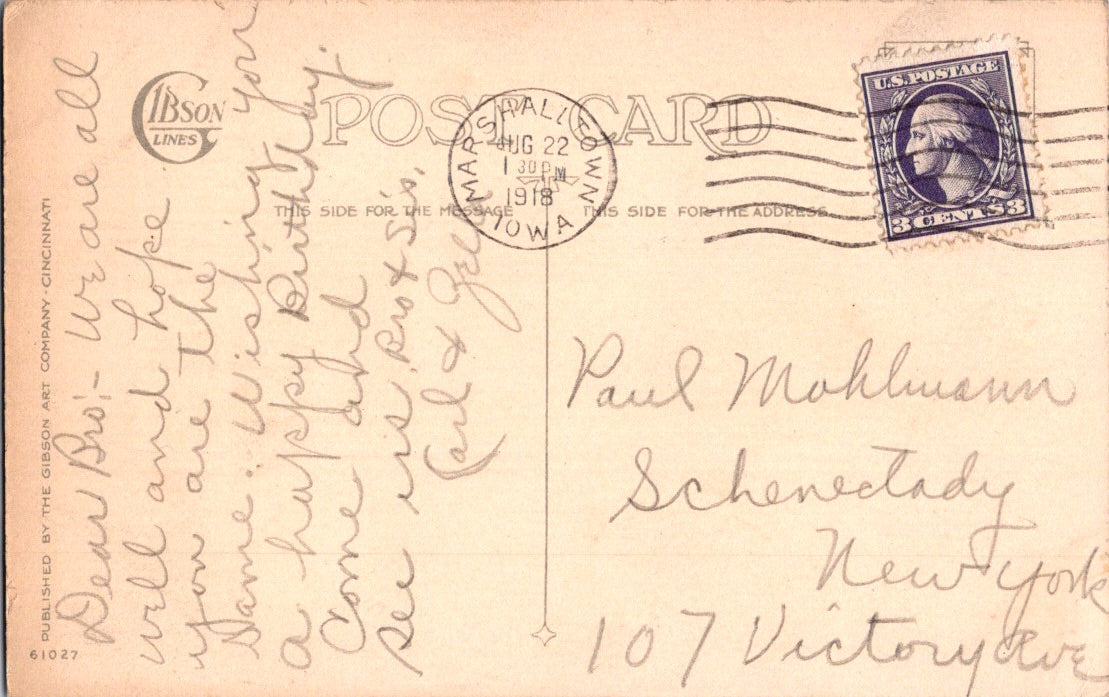 GIBSON
LINES
POST CARD
THIS SIDE FOR THE MESSAGE
THIS SIDE FOR THE ADDRESS
MARSHALLTOWN
AUG 22
1 30 PM
1918
IOWA
U.S. POSTAGE
3 CENTS 3
Dear Bro:- We are all
well and hope
you are the
same. Wishing you
a happy Birthday.
Come and
see us. Bro & Sis,
Carl &
Paul Mohlmann
Schenectady
New York
107 Victory Ave
PUBLISHED BY THE GIBSON ART COMPANY - CINCINNATI
61027